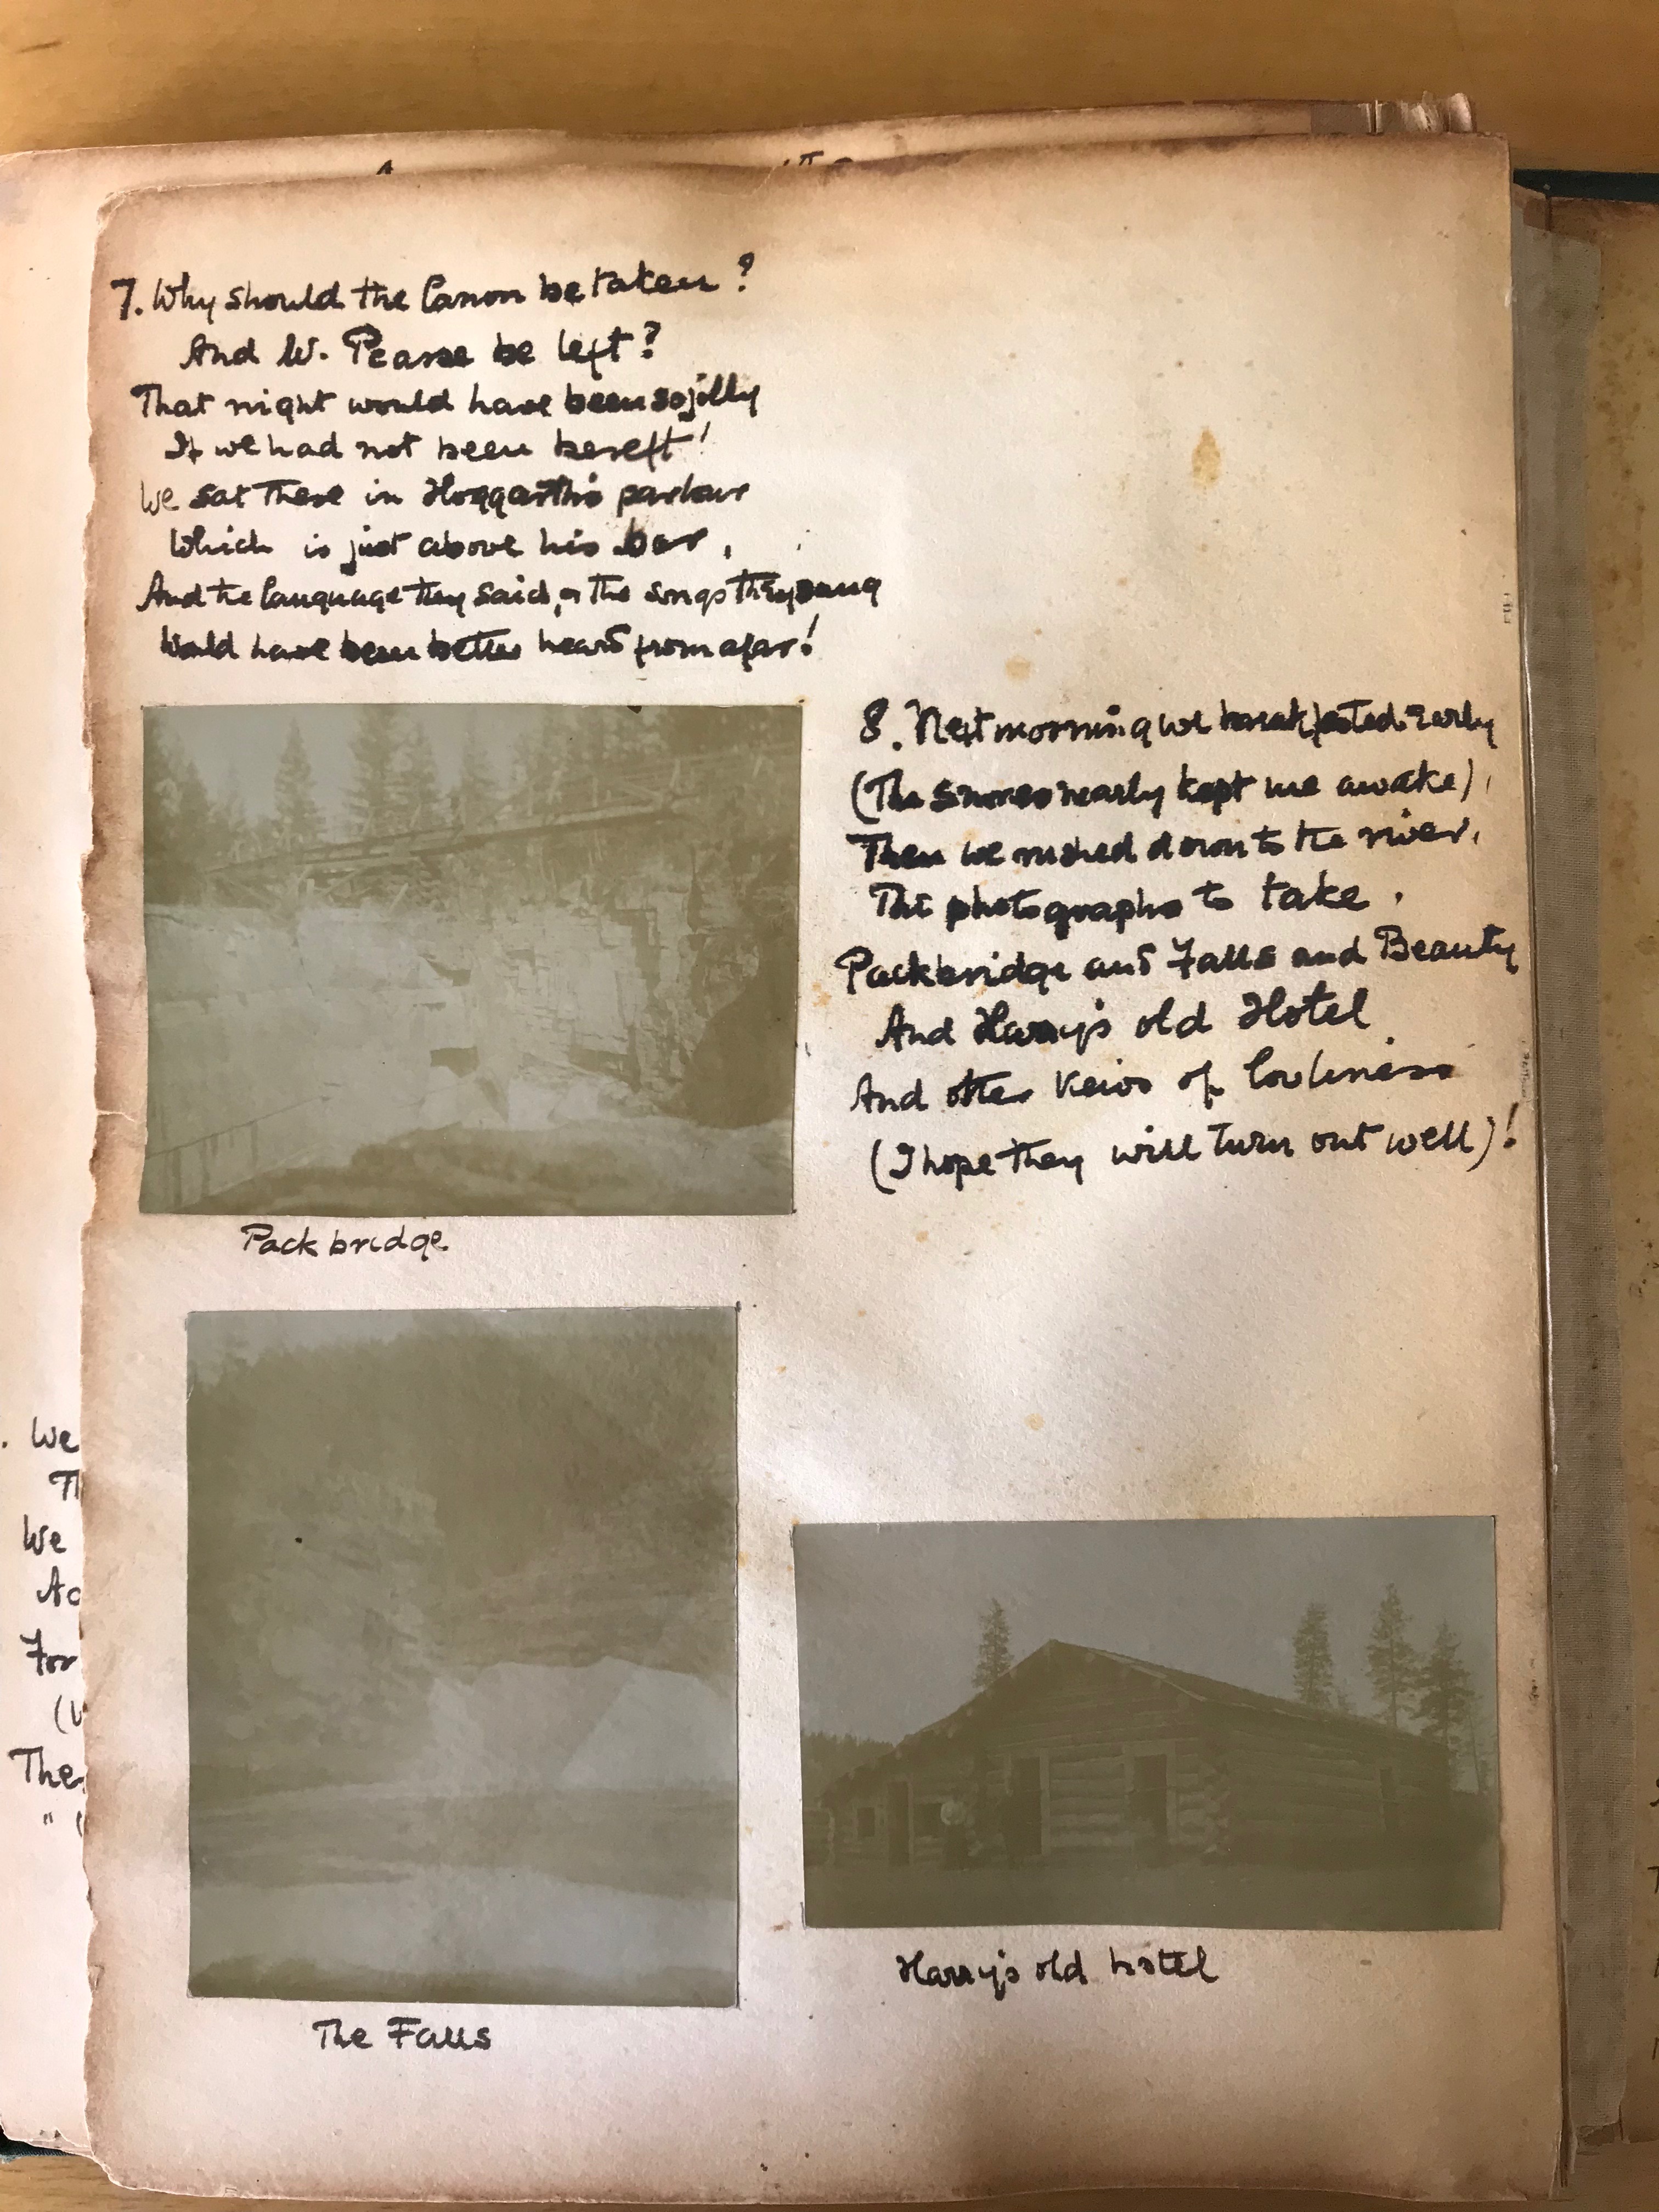 7. Why should the Canon be taken?
And W. Pearse be left?
That night would have been so jolly
If we had not been bereft!
We sat there in Hoggarth's parlour
Which is just above his bar,
And the language they said, or the songs they sang
Would have been better heard from afar!
8. Next morning we breakfasted early
(The snores nearly kept me awake)
Then we rushed down to the river,
The photographs to take.
Packbridge and Falls and Beauty
And Harry's old Hotel
And other veiws of lovliness
(I hope they will turn out well)!
Pack bridge
The Falls
Harry's old hotel
. We
We
For
The